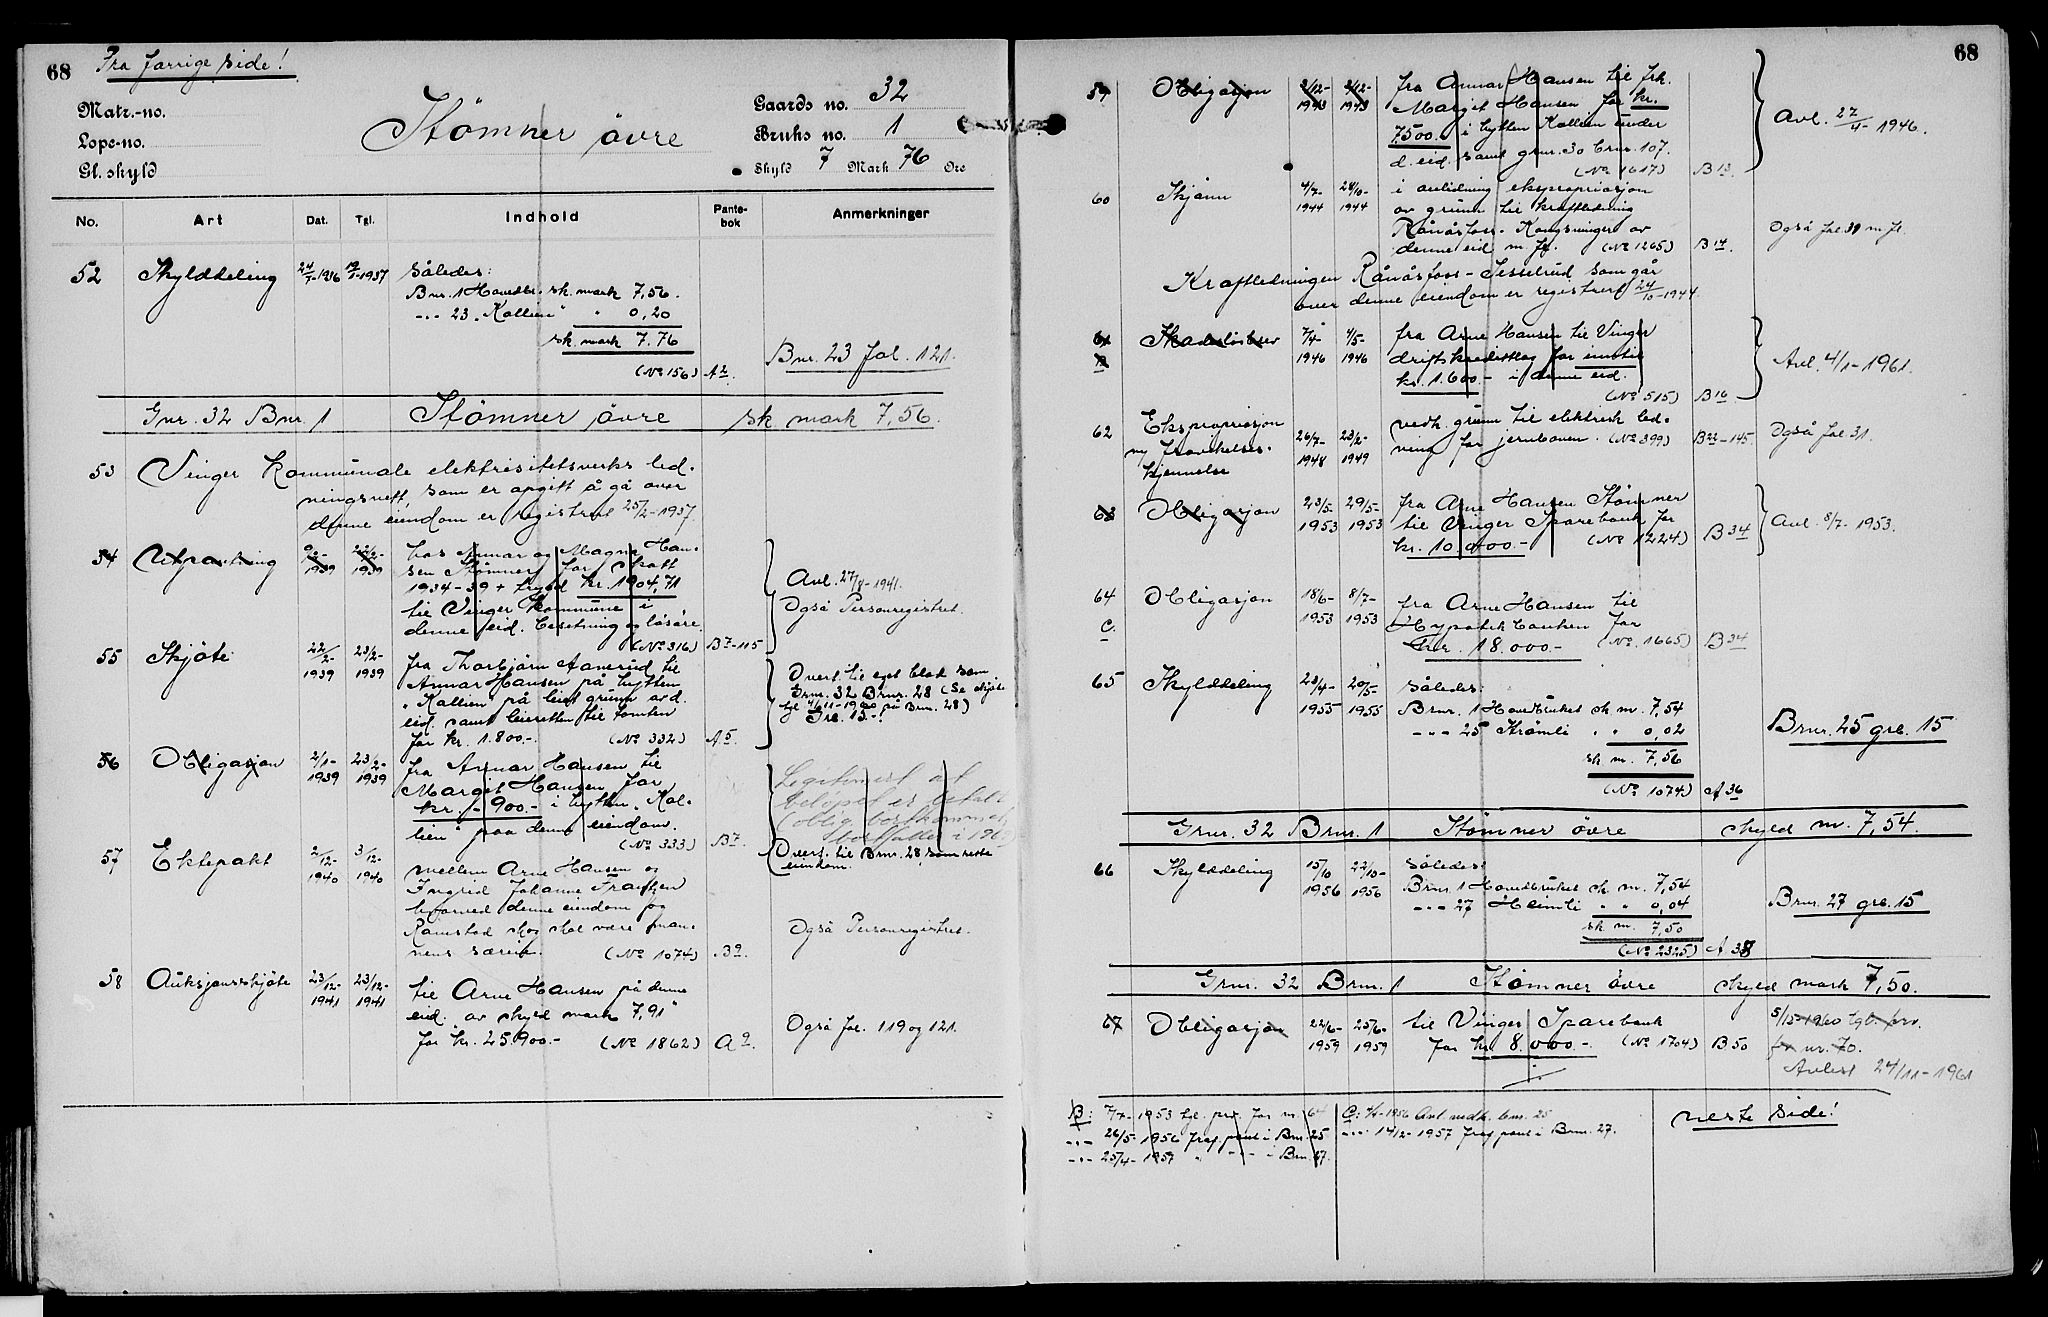 68 Fra forrige side!
Matr.-no.
Lope-no.
Gl. skyld
Stömner övre
Gaards no. 32
Bruks no. 1
Skyld 7 Mark 76 Ore
No. Art Dat. Tgl. Indhold Pante-bok Anmerkninger
52 Skylddeling 24/7-1936 19/1-1937 Således:
Bnr. 1 Hovedbr. sk. mark 7,56.
-"- 23 "Kollien" " 0,20
sk. mark 7.76
(No 156) A 2. Bnr. 23 fol. 121.
Gnr. 32 Bnr. 1 Stömner övre sk mark 7,56.
53 Vinger kommunale elektrisitetsverks led-
ningsnett, som er opgitt å gå over
denne eiendom er registrert 25/2-1937.
54 Utpantning 1939 22/2-1939 hos Annar og Magne Han-
sen Stömner for skatt
1934-39 + trygd kr. 1904,71
til Vinger kommune i
denne eid. besetning og lösöre
(No 316) B 7-115
Avl. 27/8-1941.
Også Personregistret.
55 Skjöte 22/2-1939 23/2-1939 fra Thorbjörn Aanerud til
Annar Hansen på hytten
"Kollien" på leiet grunn av d.
eid. samt leieretten til tomten
for kr. 1.800.-. (No 332) A 5.
Overf. til eget blad som
Gnr. 32 Bnr. 28 (Se skjöte
tgl 4/11-1960 på Bnr. 28)
56 Obligasjon 2/1-1939 23/2-1939 fra Annar Hansen til
Margit Hansen for
kr. 900.- i hytten "Kol-
lien" paa denne eiendom.
(No 333) B 7.
Legitimert at
belöpet er betalt
(oblig. bortkommet)
Overf. til Bnr. 28, som rette
eiendom.
57 Ektepakt 2/12-1940 3/12-1940 mellem Arne Hansen og
Ingrid Johanne Franken
hvorved denne eiendom og
Ramstad skog skal være man-
nens særeie. (No 1074) B 9. Også Personregistret.
58 Auksjonsskjöte 23/12-1941 23/12-1941 til Arne Hansen på denne
eid. av skyld mark 7,91
for kr. 25.900.- (No 1862) A 9. Også fol. 119 og 121.
68
59 Obligasjon 2/12-1943 2/12-1943 fra Annar Hansen til frk.
Margit Hansen for kr.
7500.- i hytten Kollien under
d. eid. samt gnr. 30 bnr. 107.
(No 1617) B 13.
Avl. 27/4-1946.
60 Skjönn 4/7-1944 24/10-1944 i anledning ekspropriasjon
av grunn til kraftledning
Rånåsfoss-Kongsvinger av
denne eid m. fl. (No 1265) B 14. Også fol 39 m. fl.
Kraftledningen Rånåsfoss-Tesselrud som går
over denne eiendom er registrert 24/10-1944.
61 Skadeslösbrev 7/4-1946 4/5-1946 fra Arne Hansen til Vinger
B driftskredittlag for inntil
kr. 1.600.- i denne eid.
(No 515) B 16
Avl. 4/1-1961.
62 Ekspropriasjon 26/7-1948 23/2-1949 vedk. grunn til elektrisk led-
og fravikelses- ning for jernbanen. (No 399) B 23-145. Også fol. 31.
kjennelse
63 Obligasjon 23/5-1953 29/5-1953 fra Arne Hansen Stömner
til Vinger Sparebank for
kr. 10.000.- (No 1224) B 34
Avl. 8/7-1953.
64 Obligasjon 18/6-1953 8/7-1953 fra Arne Hansen til
C. Hypotekbanken for
kr. 18.000.- (No. 1665) B 34
65 Skylddeling 23/4-1955 20/5-1955 Således:
Bnr. 1 Hovedbruket sk. m. 7,54
-"- 25 Strömli " " 0,02
sk. m. 7,56
(No 1074) A 36 Bnr. 25 gbl. 15
Gnr. 32 Bnr. 1 Stömner övre skyld m. 7,54.
66 Skylddeling 15/10 1956 22/10-1956 Således:
Bnr. 1 Hovedbruket sk. m. 7,54
-"- 27 Heimli " " 0,04
sk. m. 7,50
(No 2325) A 38 Bnr. 27 gbl. 15
Gnr. 32 Bnr. 1 Stömner övre skyld mark 7,50.
67 Obligasjon 22/6-1959 25/6-1959 til Vinger Sparebank
for kr 8.000.-. (No 1704) B 50
for nr. 70.
Avlest 24/11-1961
B: 7/7-1953 tgl. prv. for nr. 64
-"- 26/5-1956 fraf. pant i Bnr. 25
-"- 25/4-1957 " -"- i Bnr. 27.
C: 1956 Avl vedk. bnr. 25
-"- 14/2-1957 fraf. pant i Bnr. 27.
neste side!